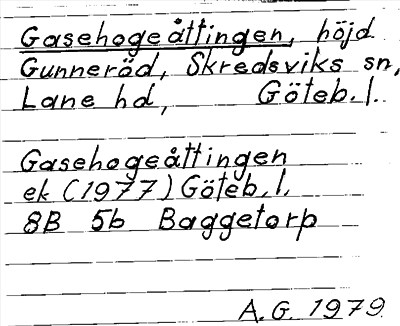 Gasehogeåttingen, höjd
Gunneröd, Skredsviks sn,
Lane hd, Göteb. l.
Gasehogeåttingen
ek (1977) Göteb. l.
8B 5b Baggetorp
A. G. 1979